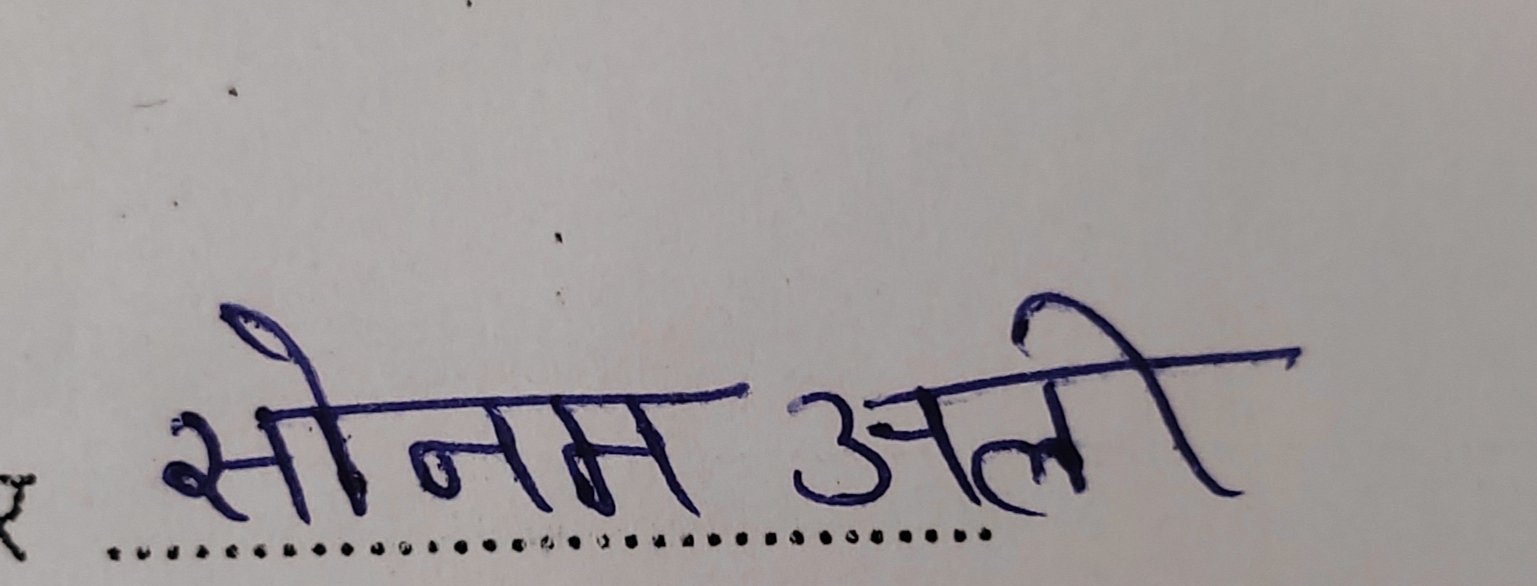 सोनम अली